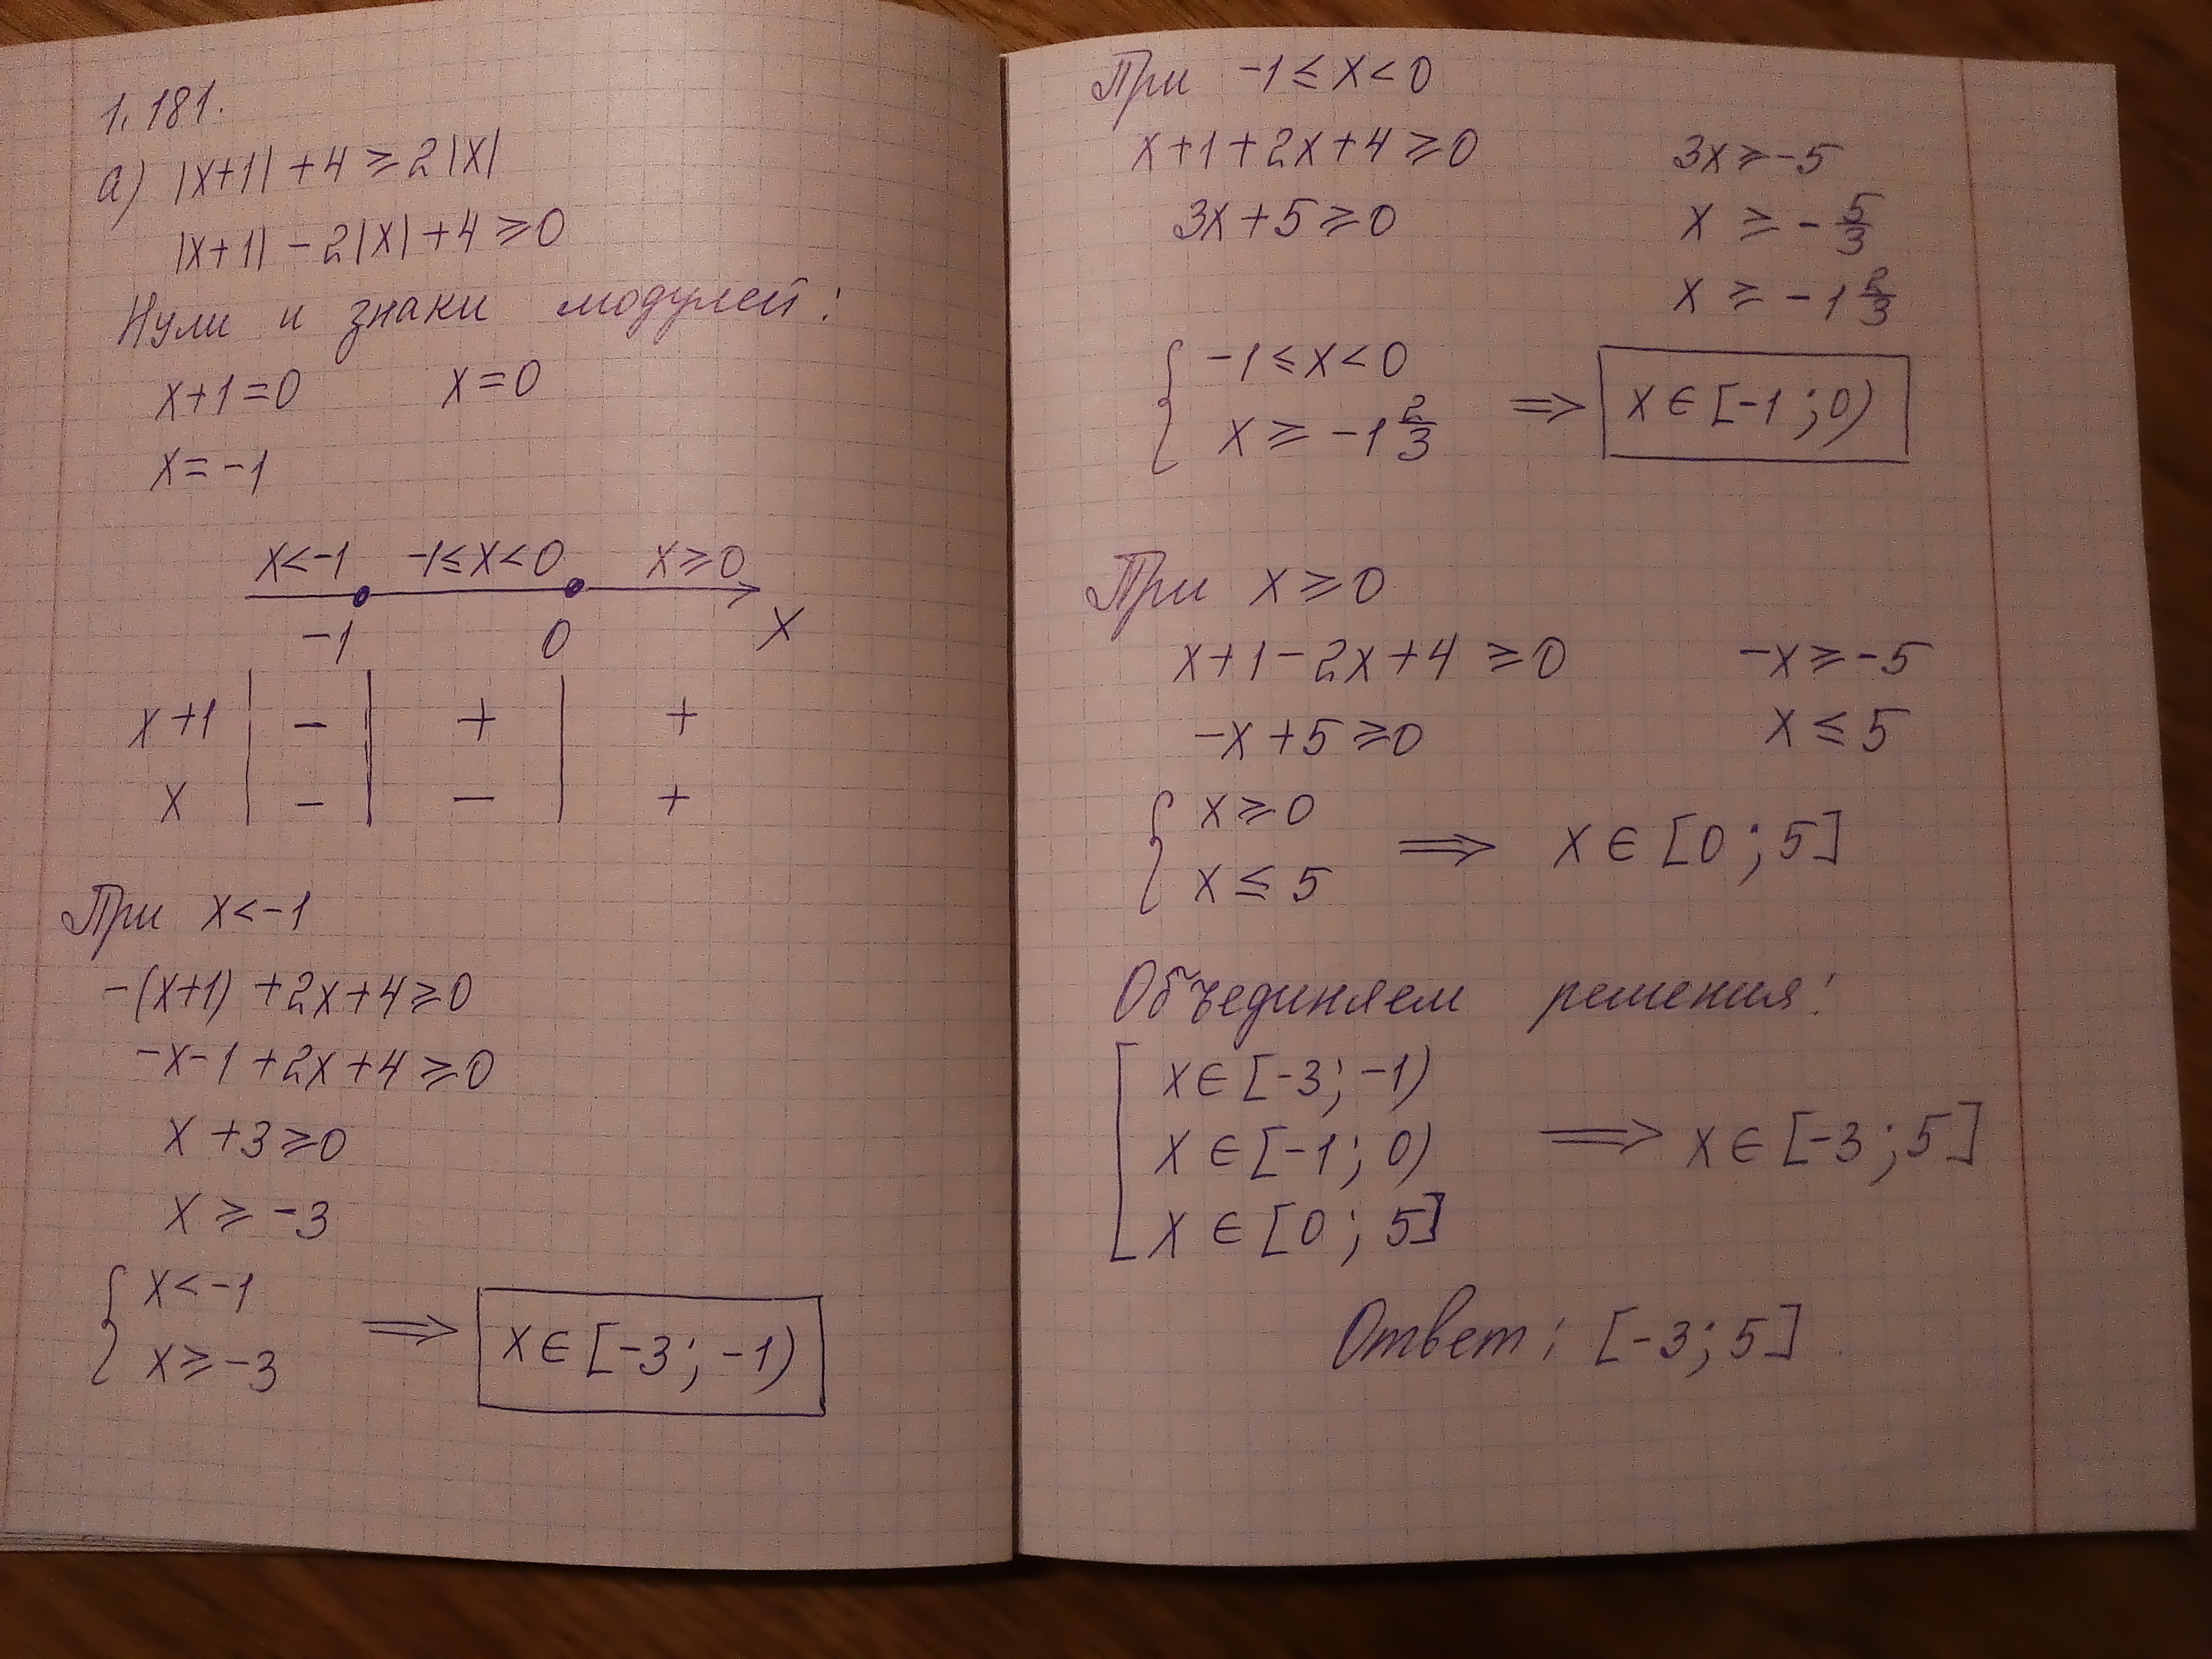 1.181.
а) |x+1| + 4 ≥ 2|x|
|x+1| - 2|x| + 4 ≥ 0
Нули и знаки модулей:
x+1=0 x=0
x=-1
x<-1 -1≤x<0 x≥0
-1 0 x
x+1 - + +
x - - +
При x<-1
-(x+1) +2x+4≥0
-x-1+2x+4≥0
x+3≥0
x ≥ -3
x<-1
x≥-3 ⇒ x∈[-3; -1)
При -1≤x<0
x+1+2x+4≥0 3x≥-5
3x+5≥0 x ≥ -5/3
x ≥ -1 2/3
-1≤x<0
x ≥ -1 2/3 ⇒ x∈[-1;0)
При x≥0
x+1-2x+4≥0 -x≥-5
-x+5≥0 x≤5
x≥0
x≤5 ⇒ x∈[0;5]
Объединяем решения:
x∈[-3;-1)
x∈[-1;0) ⇒ x∈[-3;5]
x∈[0;5]
Ответ: [-3;5]